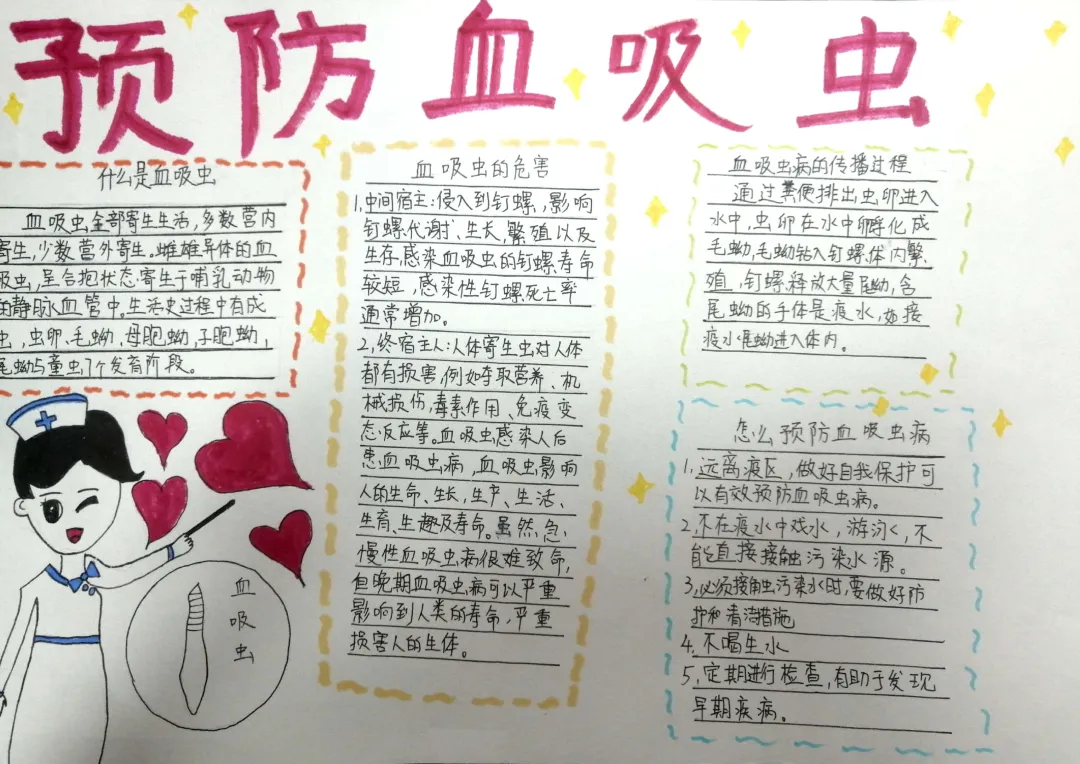 预防血吸虫
什么是血吸虫
血吸虫,全部寄生生活,多数营内
寄生,少数营外寄生。雌雄异体的血
吸虫,呈合抱状态寄生于哺乳动物
的静脉血管中。生活史过程中有成
虫,虫卵、毛蚴、母胞蚴,子胞蚴,
尾蚴与童虫,7个发育阶段。
血吸虫
血吸虫的危害
1,中间宿主:侵入到钉螺,影响
钉螺代谢、生长,繁殖以及
生存,感染血吸虫的钉螺,寿命
较短,感染性钉螺死亡率
通常增加。
2,终宿主人:人体寄生虫对人体
都有损害,例如夺取营养、机
械损伤,毒素作用、免疫变
态反应等。血吸虫感染人后
患血吸虫病,血吸虫影响
人的生命、生长,生产、生活、
生育、生趣及寿命。虽然,急、
慢性血吸虫病很难致命,
但晚期血吸虫病可以严重
影响到人类的寿命,严重
损害人的生体。
血吸虫病的传播过程
通过粪便排出虫卵进入
水中,虫卵在水中孵化成
毛蚴,毛蚴钻入钉螺体内繁
殖,钉螺释放大量尾蚴,含
尾蚴的手体是疫水,如接
疫水尾蚴进入体内。
怎么预防血吸虫病
1,远离疫区,做好自我保护可
以有效预防血吸虫病。
2,不在疫水中戏水,游泳,不
能直接接触污染水源。
3,必须接触污染水时,要做好防
护和清洁措施
4,不喝生水
5,定期进行检查,有助于发现
早期疾病。